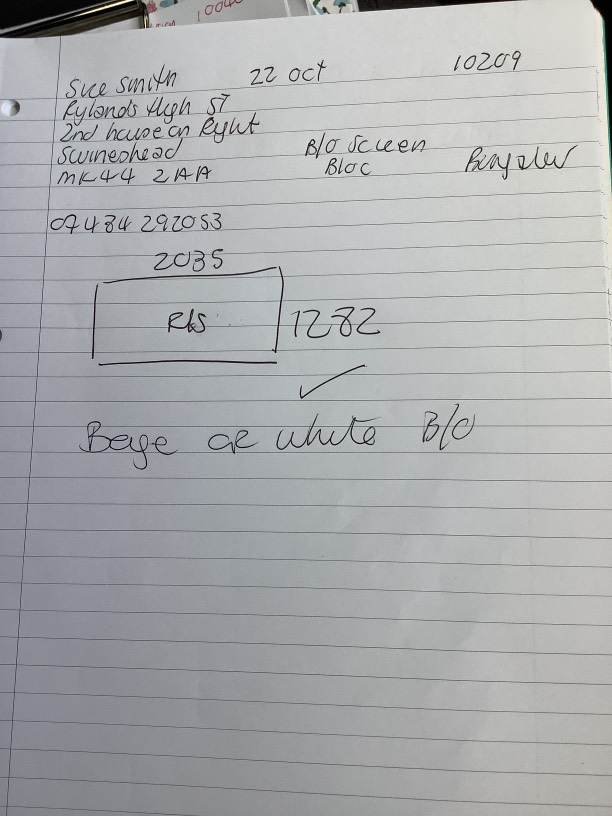 1004
Sue Smith 22 Oct 10209
Rylands High ST
2nd house on Right
Swineshead B/O Screen
MK44 2AA Bloc
07484 292053
2035
RHS 1282
✓
Beige or white B/O